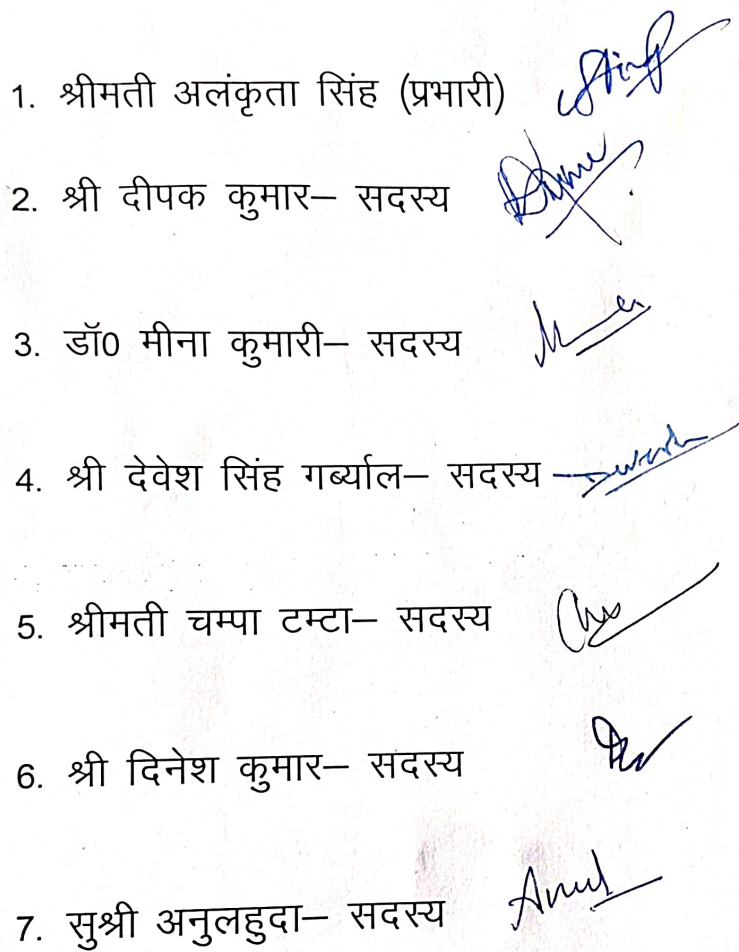 1. श्रीमती अलंकृता सिंह (प्रभारी)
2. श्री दीपक कुमार– सदस्य
3. डॉ0 मीना कुमारी– सदस्य
4. श्री देवेश सिंह गर्ब्याल– सदस्य
5. श्रीमती चम्पा टम्टा– सदस्य
6. श्री दिनेश कुमार– सदस्य
7. सुश्री अनुलहुदा– सदस्य